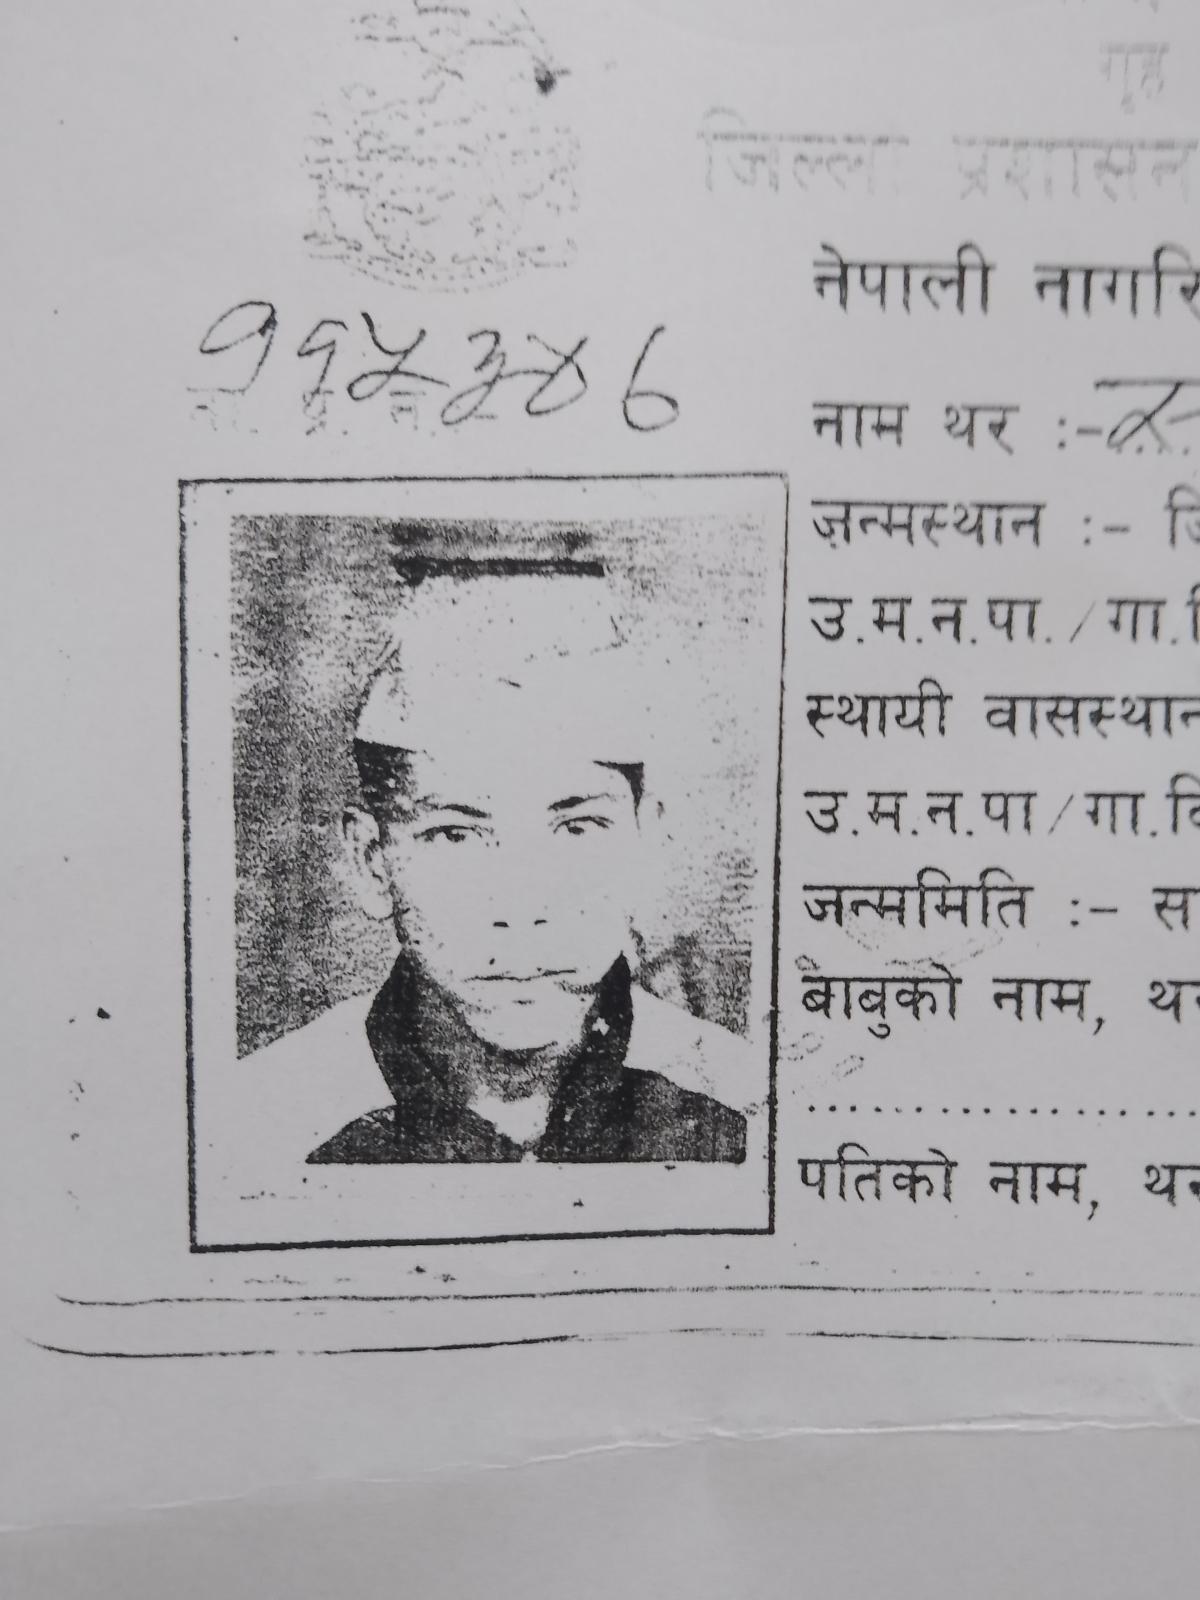 गृह
जिल्ला प्रशासन
नेपाली नागरि
११५३४६
ना. प्र. नं.
नाम थर :-
जन्मस्थान :- जि
उ.म.न.पा./गा.वि
स्थायी वासस्थान
उ.म.न.पा/गा.वि
जन्ममिति :- स
बाबुको नाम, थर
पतिको नाम, थर